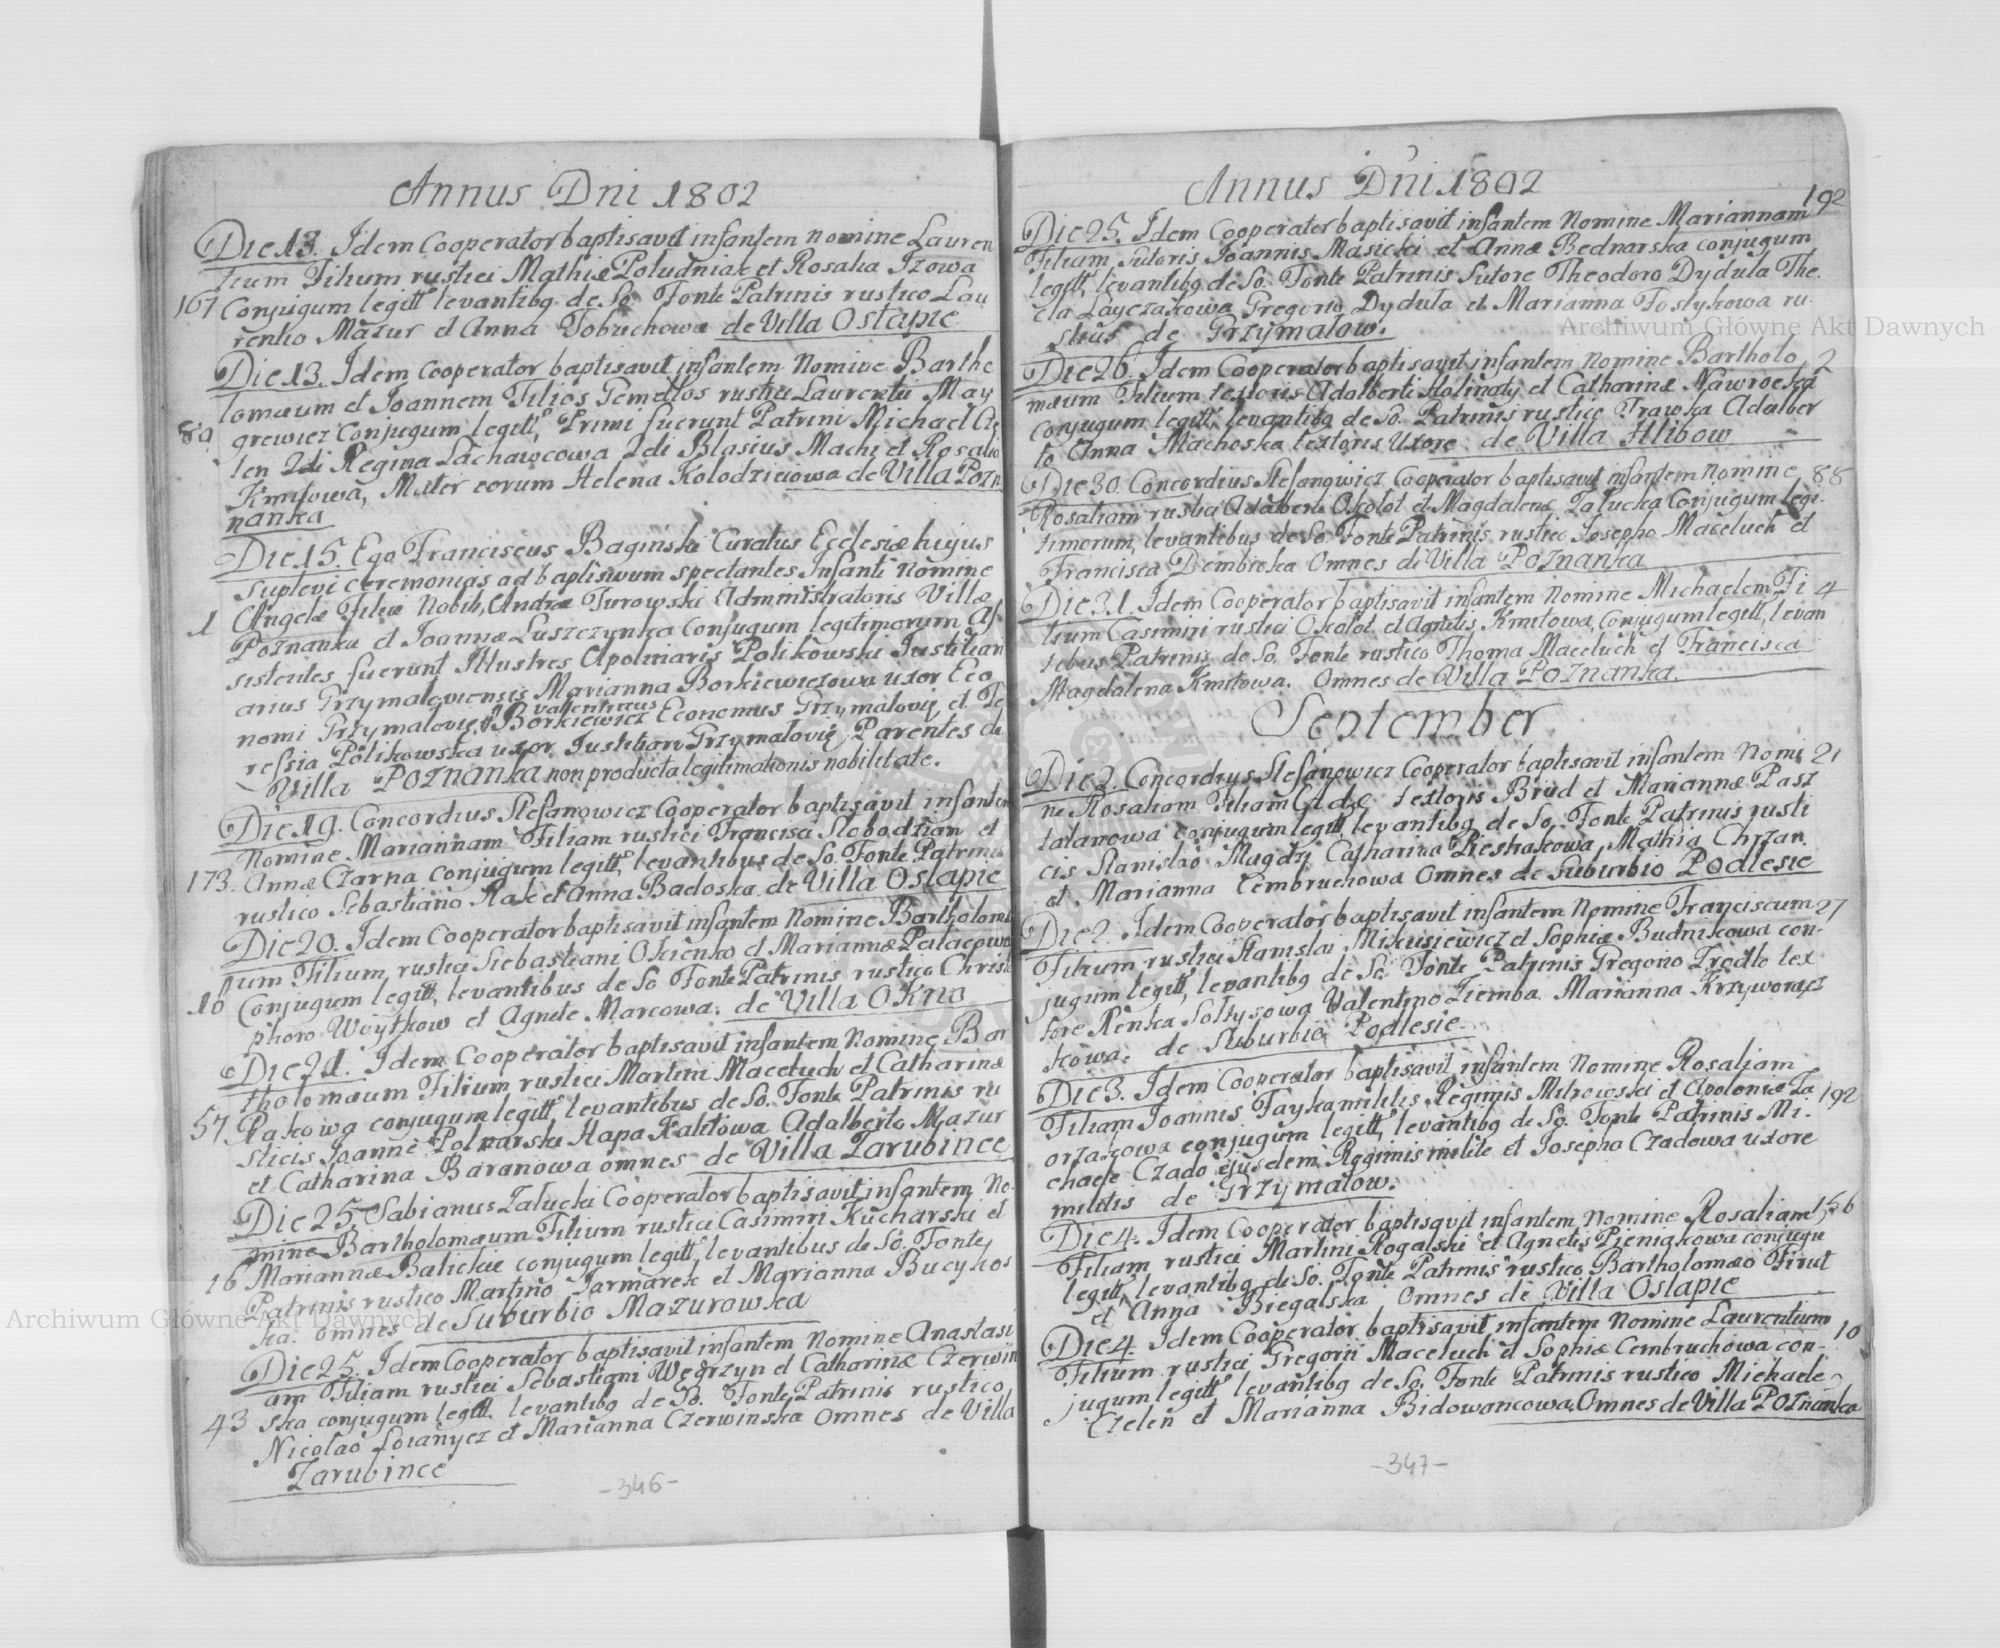 Annus Dni 1802
Die 13. Idem Cooperator baptisavit infantem nomine Lauren
tium Filium rustici Mathiæ Poludniak et Rosalia Izowa
107 Conjugum legitt levantibg de So. Fonte Patrinis rustico Lau
rentio Mazur et Anna Tobuchowa de Villa Ostapie
Die 13. Idem Cooperator baptisavit infantem Nomine Bartho
lomæum et Joannem Filios Gemellos rustici Laurentii May
89 grewicz Conjugum legitt, Primi fuerunt Patrini Michael Cze
len 2di Regina Lachawcowa 2di Blasius Mach, et Rosalia
Kmitowa, Mater eorum Helena Kolodzieiowa de Villa Pozn
nanka
Die 15. Ego Franciscus Baginski Curatus Ecclesiæ hujus
Suplevi ceremonias ad baptismum spectantes Infanti Nomine
1 Angelæ Filiæ Nobili, Andreæ Turowski Administratoris Villæ
Poznanka et Joannæ Luszczynka Conjugum legitimorum As
sistentes fuerunt Illustres Apolinaris Polikowski Justitian
arius Grzymaloviensis Marianna Borkiewiczowa uxor Eco
nomi Grzymalovię, Valentinus Borkiewicz Economus Grzymalovię, et Te
ressia Polikowska uxor Justitiari Grzymalovię, Parentes de
Villa Poznanka non producta legitimationis nobilitate.
Die 19. Concordius Stefanowicz Cooperator baptisavit infantem
Nomine Mariannam Filiam rustici Francisci Slobodzian et
173. Annæ Czarna conjugum legitt, levantibus de So. Fonte Patrinis
rustico Sebastiano Rak et Anna Badoska de Villa Ostapie
Die 20. Idem Cooperator baptisavit infantem Nomine Bartholomæ
um Filium, rustici Siebastiani Okienko et Mariannæ Patacowa
10 Conjugum legitt, levantibus de So Fonte Patrinis rustico Christo
phoro Woytkow et Agnete Marcowa. de Villa Okno
Die 21. Idem Cooperator baptisavit infantem Nomine Bar
tholomæum Filium rustici Martini Maceluch et Catharinæ
57 Rakowa conjugum legitt, levantibus de So. Fonte Patrinis ru
sticis Joanne Polnarski Hapa Kalitowa Adalberto Mazur
et Catharina Baranowa omnes de Villa Zarubince
Die 25. Sabianus Zalucki Cooperator baptisavit infantem No
mine Bartholomæum Filium rustici Casimiri Kucharski et
16 Mariannæ Balickie conjugum legitt, levantibus de So. Fonte,
Patrinis rustico Martino Jarmarek et Marianna Bucykos
ka. omnes de Suburbio Mazurowka
Die 25. Idem Cooperator baptisavit infantem Nomine Anastasi
am Filiam rustici Sebastiani Wegrzyn et Catharinæ Czerwin
43 ska conjugum legitt. levantibg de So. Fonte Patrinis rustico
Nicolao et Marianna Czerwinska Omnes de Villa
Zarubince
-346-
Annus Dni 1802
192
Die 25. Idem Cooperator baptisavit infantem Nomine Mariannam
Filiam Sutoris Joannis Masicki et Annæ Bednarska conjugum
legitt, levantibg de So. Fonte Patrinis Sutore Theodoro Dydula The
cla Layczakowa Gregorio Dydula et Marianna Fostykowa ru
sticis de Grzymalow.
Die 26. Idem Cooperator baptisavit infantem Nomine Bartholo 2
mæum Filium textoris Adalberti Holinaty et Catharinæ Nawrocka
conjugum legitt, levantibg de So. Patrinis rustico Trawka Adalber
to Anna Machoska textoris Uxore de Villa Hlibow
Die 30. Concordius Stefanowicz Cooperator baptisavit infantem Nomine 88
Rosaliam rustici Adalberti Okolot et Magdalenæ Zalucka Conjugum legi
timorum, levantibus de So. Fonte Patrinis rustico Josepho Maceluch et
Francisca Dembicka Omnes de Villa Poznanka
Die 31. Idem Cooperator baptisavit infantem Nomine Michaelem Fi 4
lium Casimiri rustici Okolot et Agnetis Kmitowa, Conjugum legitt, levan
tibus Patrinis de So. Fonte rustico Thoma Maceluch et Francisca
Magdalena Kmitowa. Omnes de Villa Poznanka.
September
Die 2. Concordius Stefanowicz Cooperator baptisavit infantem Nomi 21
ne Rosaliam Filiam textoris Brud et Mariannæ Pasz
talanowa conjugum legitt, levantibg de So. Fonte Patrinis rusti
cis Stanislao Magdz Catharina Piestrakowa, Mathia Chrzan
et Marianna Cembruchowa Omnes de Suburbio Podlesie
Die 2. Idem Cooperator baptisavit infantem Nomine Franciscum 27
Filium rustici Stanislai Mikusiewicz et Sophiæ Budnikowa con
jugum legitt, levantibg de So. Fonte Patrinis Gregorio Zrodlo tex
tore Renka Soltysowa Valentino Ziemba Marianna Krzyworącz
kowa. de Suburbio Podlesie.
Die 3. Idem Cooperator baptisavit infantem Nomine Rosaliam
Filiam Joannis Fayka militis Regimis Mitrowski et Apoloniæ Za 192
orzakowa conjugum legitt, levantibg de So. Fonte Patrinis Mi
chaele Czado ejusdem Regimis milite et Josepha Czadowa uxore
militis de Grzymalow.
Die 4. Idem Cooperator baptisavit infantem Nomine Rosaliam 156
Filiam rustici Martini Rogalski et Agnetis Pieniakowa conjugu
legitt, levantibg de So. Fonte Patrinis rustico Bartholomæo Firut
et Anna Biegalska omnes de Villa Ostapie
Die 4. Idem Cooperator baptisavit infantem Nomine Laurentium 10
Filium rustici Gregorii Maceluch et Sophiæ Cembruchowa con
jugum legitt levantibg de So. Fonte Patrinis rustico Michaele
Czelen et Marianna Bidowancowa Omnes de Villa Poznanka
-347-
Archiwum Główne Akt Dawnych
Archiwum Główne Akt Dawnych